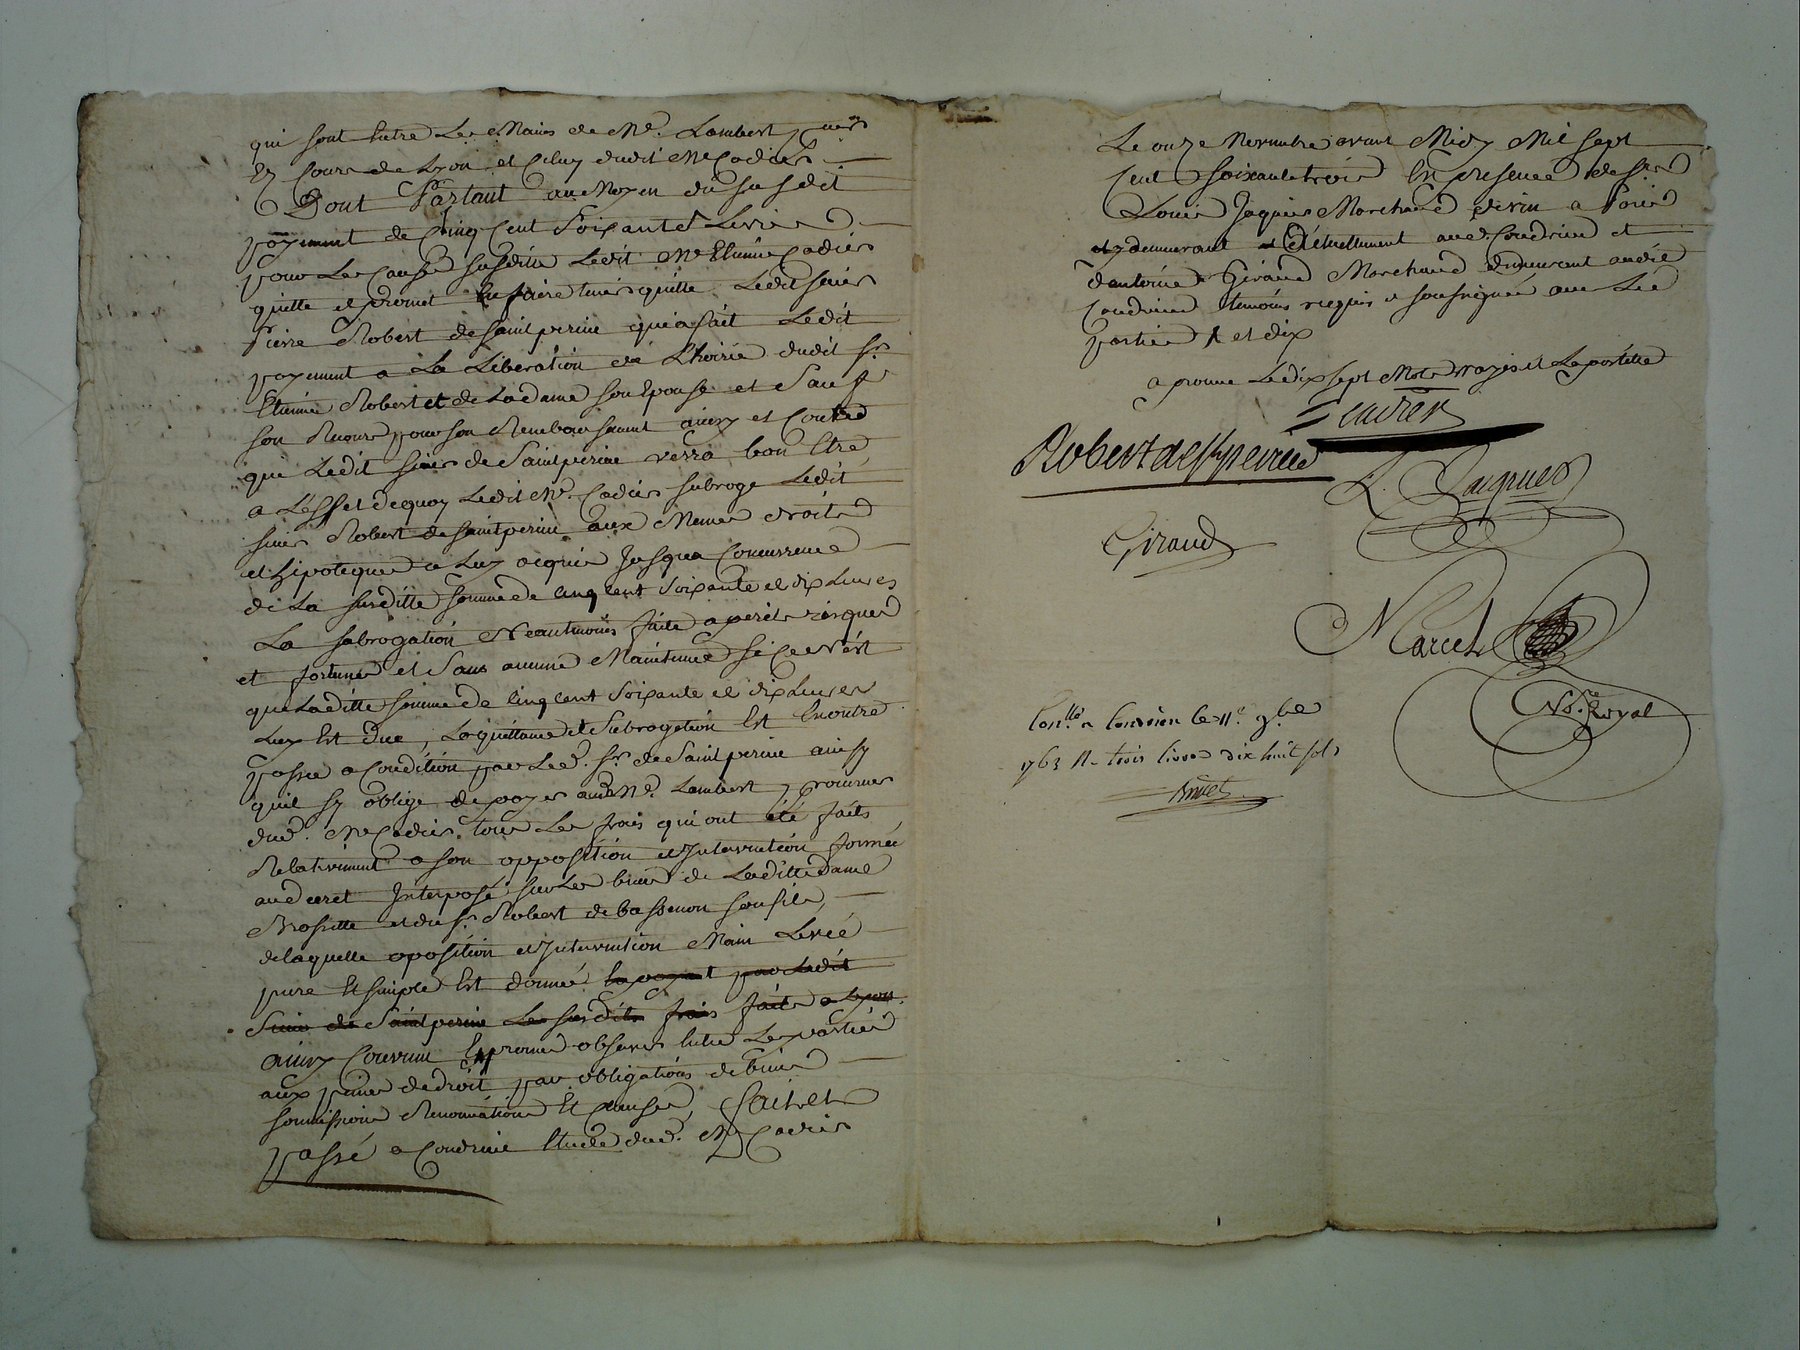 qui sont Entre Les Mains de Me. Lambert
Es Cours de Lyon et Celuy dudit Me Cadier
Dont Partant au Moyen du susdit
payement de Cinq Cent Soixante Livres
pour Les Causes susdittes Ledit Me Etienne Cadier
quitte et promet faire tenir quitte Ledit sieur
Pierre Robert de saint perine qui a fait Ledit
payement a La Libération de L'hoirie dudit sr.
Etienne Robert et de La dame son Epouse et Sauf
son Recours pour son Remboursement ainsy et Contre
qui Ledit sieur de Saint perine verra bon Etre,
a L'effet dequoy Ledit Me. Cadier subroge Ledit
sieur Robert de saint perine aux Memes droits
et hipoteques a Luy acquis Jusqua Concurrence
de La susditte somme de Cinq Cent Soixante et dix Livres
La subrogation Neantmoins faite a perils risques
et fortunes et Sans aucune Maintenue si Ce N'est
que Laditte somme de Cinq Cent Soixante et dix Livres
Luy Est due, La quittance et Subrogation Est Encontre
passée a Condition par Led. sr. de Saint perine ainsy
quil sy oblige de payer audt Me. Lambert procureur
dud. Me Cadier tous Les frais qui ont été faits
Relativement a son opposition et Intervention formée
au decret Interposé sur Les biens de Laditte Dame
Brossette et du sr. Robert de bassenon son fils,
de laquelle oposition et Intervention Main Levée
pure Et simple Est donnée En payant par Ledit
Sieur de Saint perine Les susdits frais faits a Lyon.
ainsy Convenu Et promis observer Entre Les parties
aux peines de droit par obligations de biens
soumissions Renonciations Et Clauses, fait et
passé a Condrieu Etude dud. Me Cadier
Le onze Novembre avant Midy Mil sept
Cent Soixante trois En presence de sr.
Louis Jaques Marchand de vin a Paris
et y demeurant Actuellement aud. Condrieu et
d'antoine Giraud Marchand demeurant audit
Condrieu temoins requis et soussignés avec Les
parties et dix
aprouvé Le dix sept Mots rayés et Lapostille
Cadier
Robert de St perine
L. Jaques
Giraud
Marcel
Nore Royal
Conllé a Condrieu le 11e 9bre
1763 R. trois livres dix huit sols